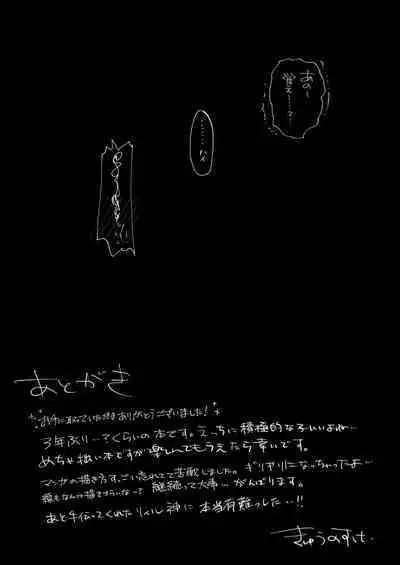 あの〜
………ハイ
あとがき
お手に取っていただきありがとうございました!
3年ぶり…くらいの本です。えっちに積極的な
めちゃ拙い本ですが楽しんでもらえたら幸いです。
マンガの描き方すっごい忘れてて苦戦しました。ギリギリになっちゃったよ…
継続って大事…がんばります。
あと手伝ってくれたリィル神に本当有難うっした…!!
きゅうのすけ.